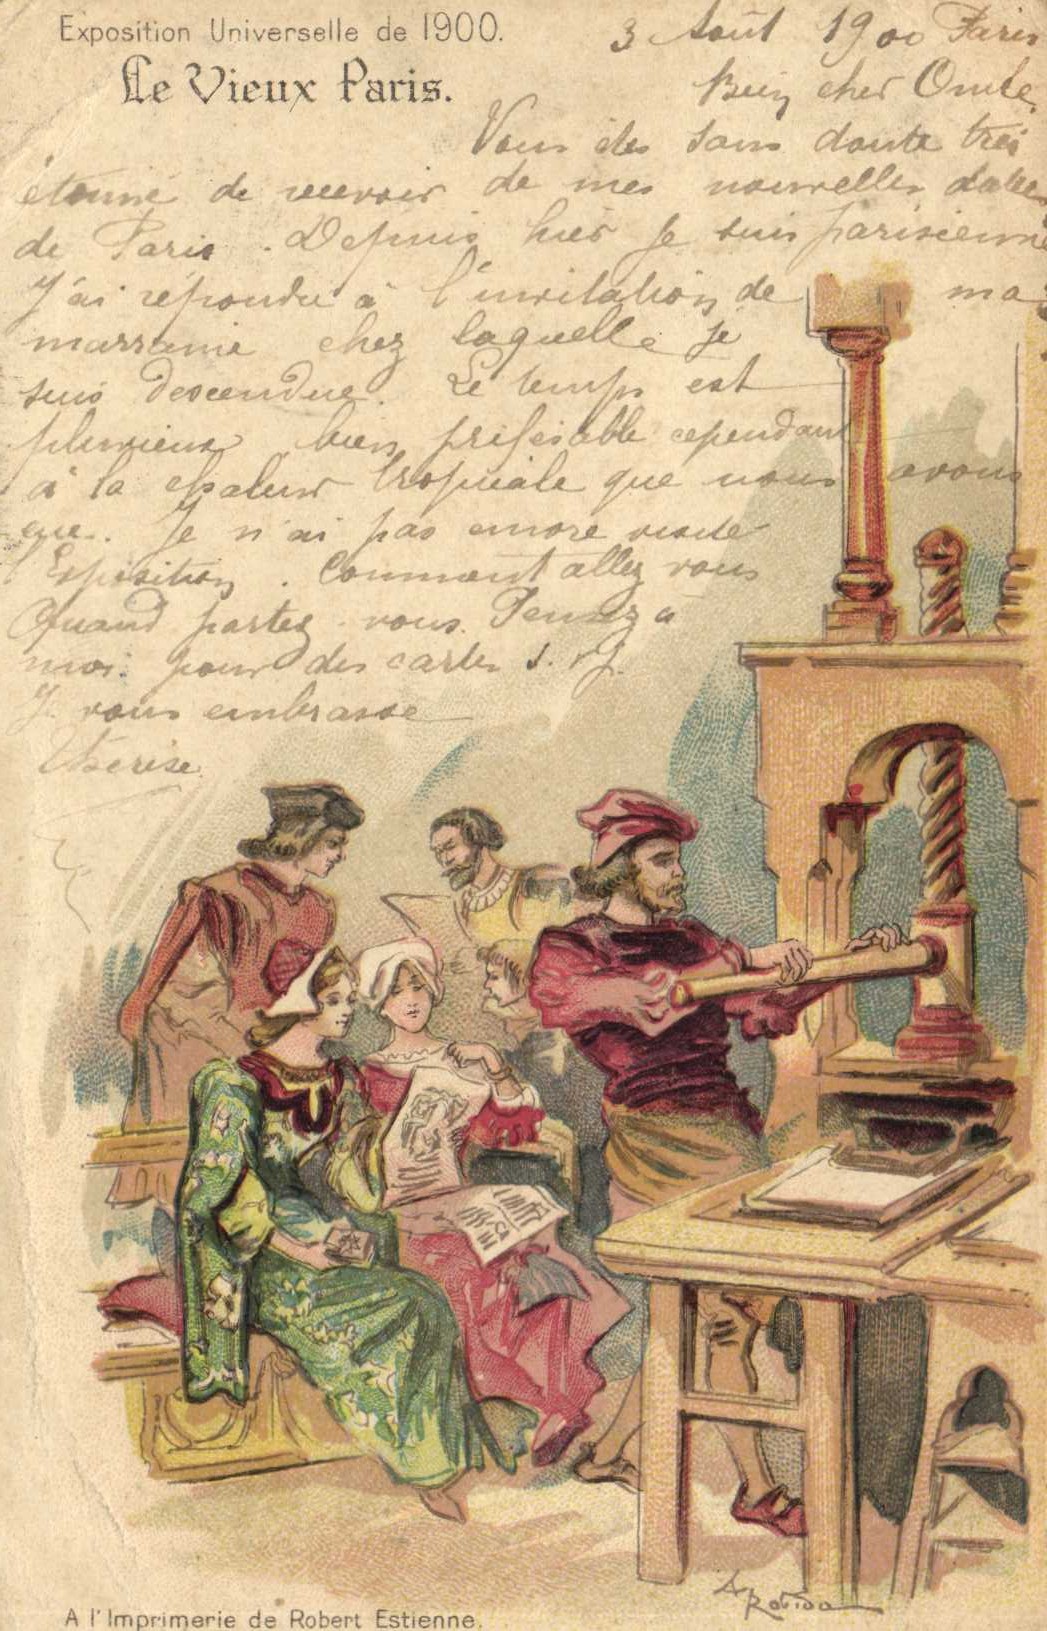 Exposition Universelle de 1900.
Le Vieux Paris.
3 Août 1900 Paris
Bien cher Oncle,
Vous êtes sans doute très
étonné de recevoir de mes nouvelles datées
de Paris. Depuis hier je suis parisienne
J'ai répondu à l'invitation de ma
marraine chez laquelle je
suis descendue. Le temps est
pluvieux bien préférable cependant
à la chaleur tropicale que nous avons
eue. Je n'ai pas encore visité
l'Exposition. Comment allez vous
Quand partez-vous. Pensez à
moi pour des cartes s. v. p.
Je vous embrasse
Thérèse
A Robida
A l'Imprimerie de Robert Estienne.